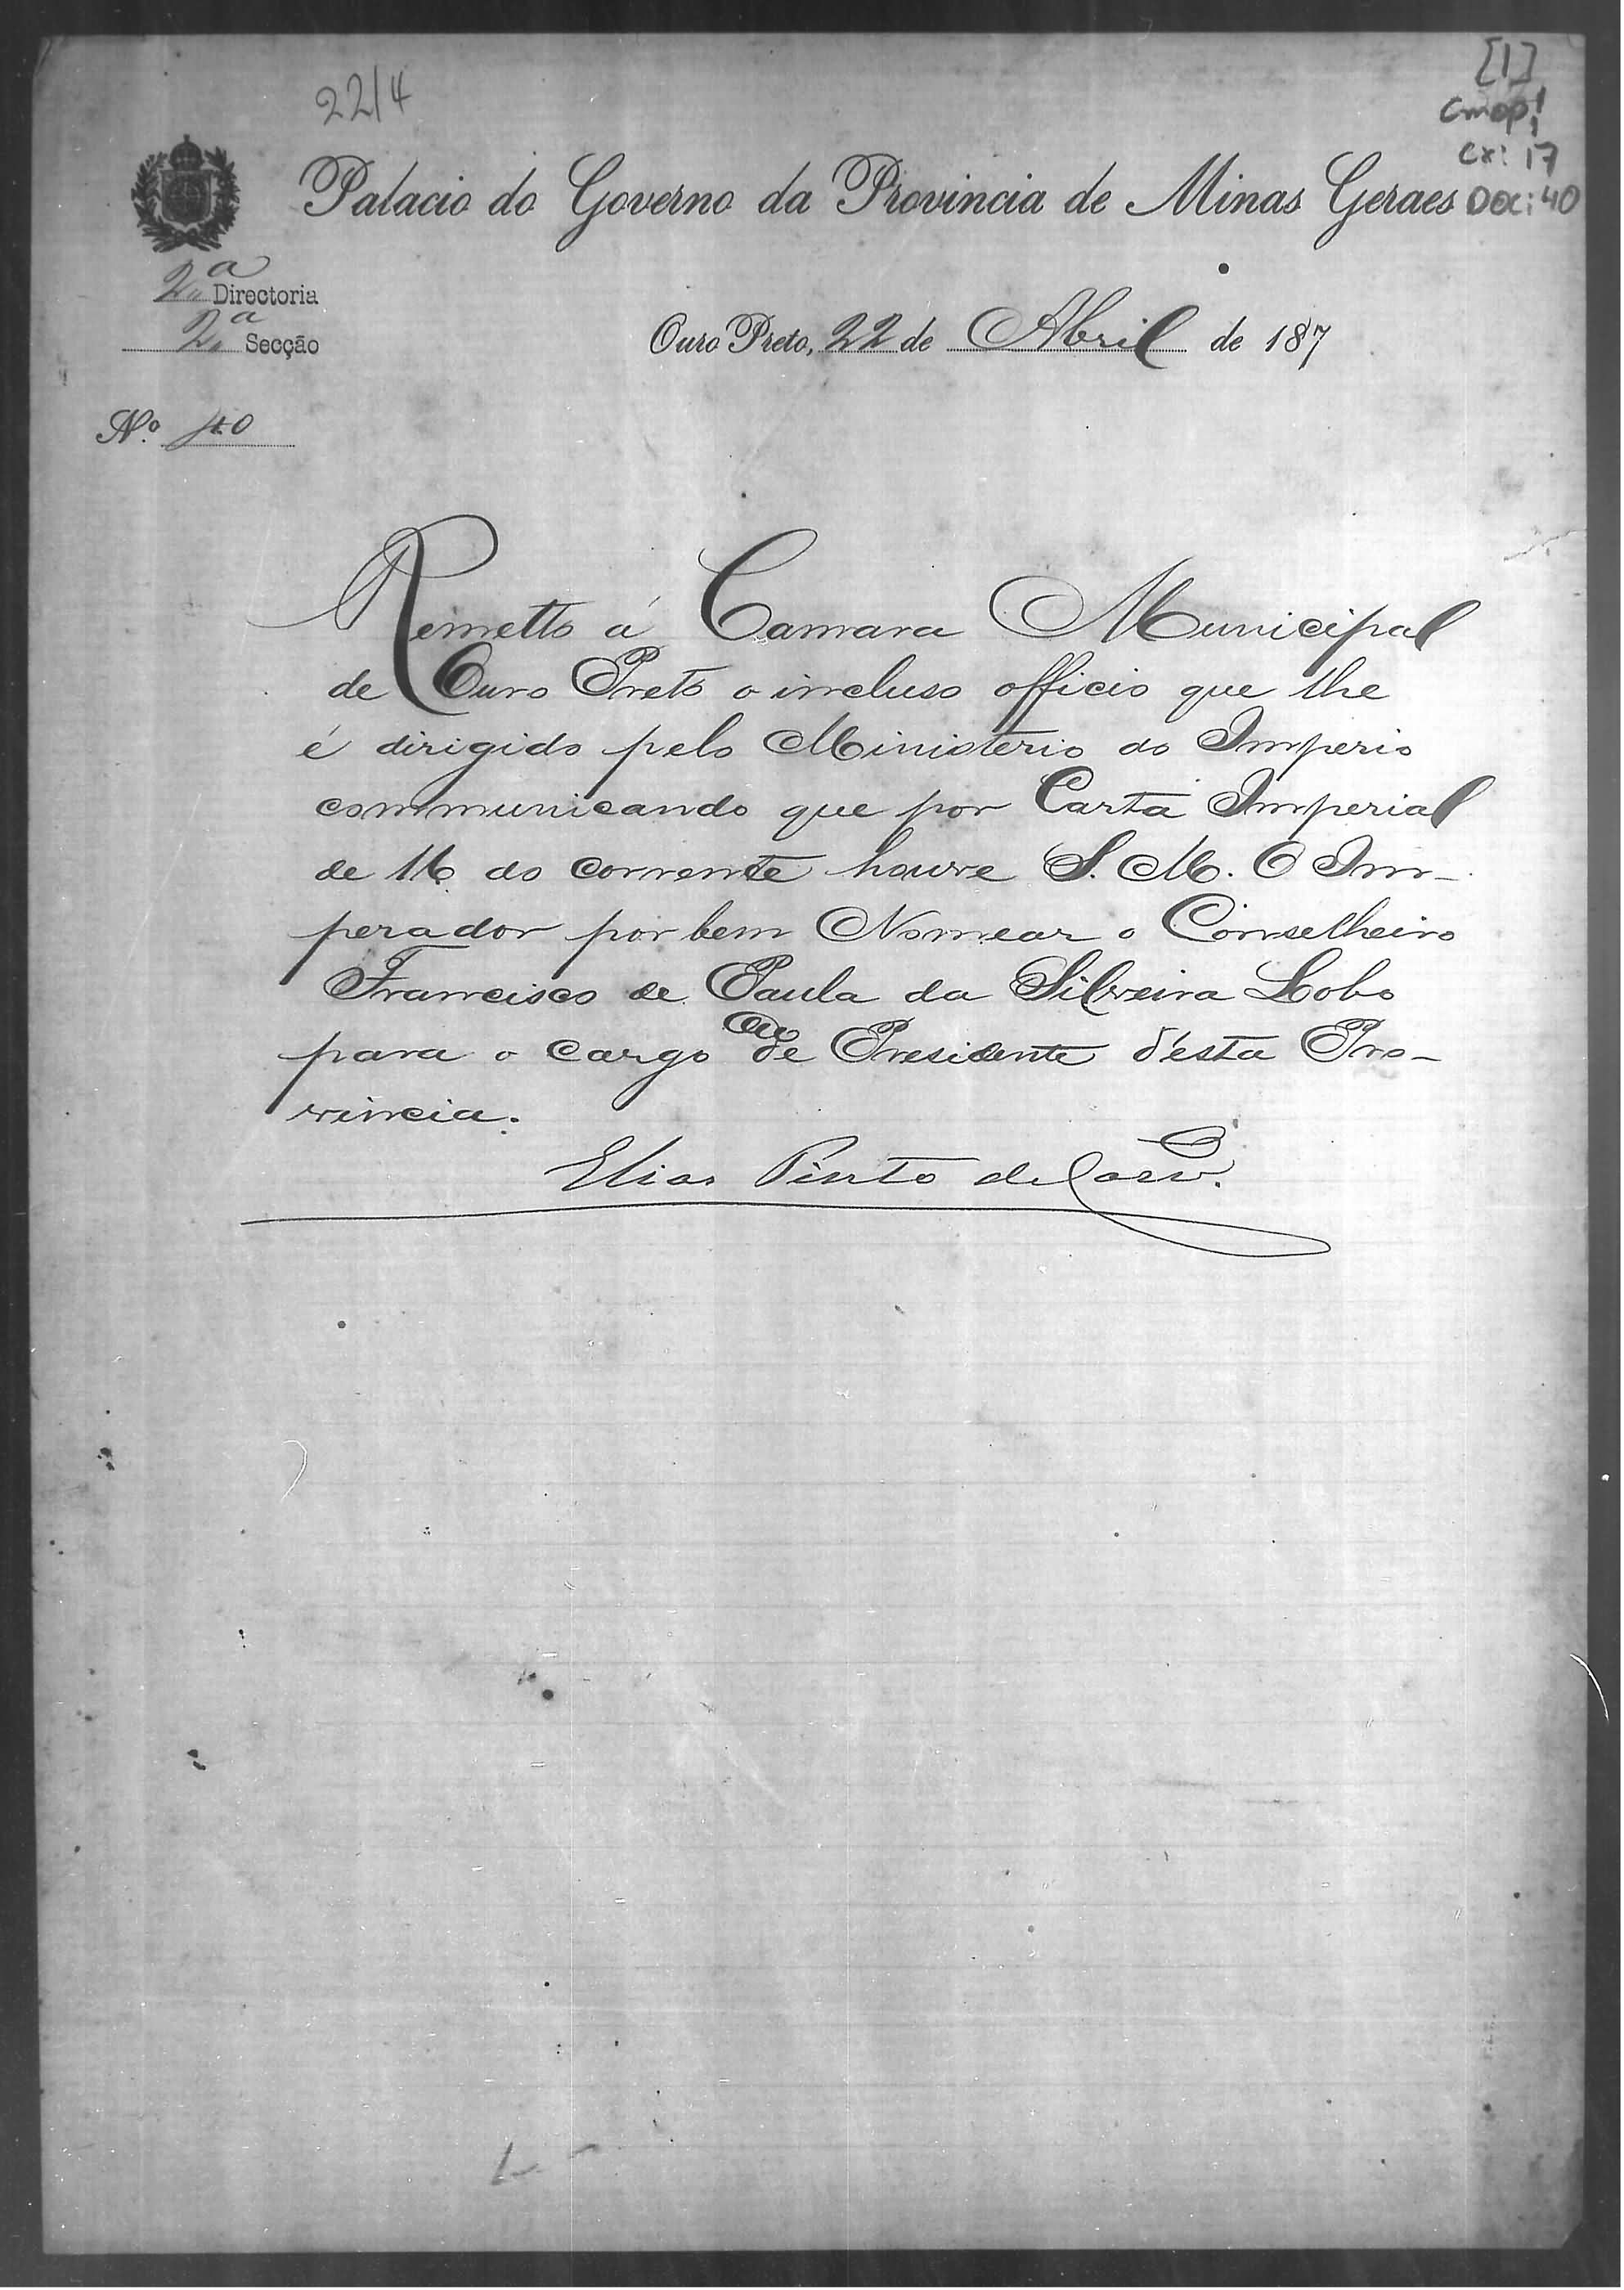 22/4
[1]
CMOP!
CX: 17
DOC: 40
Palacio do Governo da Provincia de Minas Geraes
2ª Directoria
2ª Secção
Ouro Preto, 22 de Abril de 187
N.º 40
Remetto á Camara Municipal
de Ouro Preto o incluso officio que lhe
é dirigido pelo Ministerio do Imperio
communicando que por Carta Imperial
de 16 do corrente houve S. M. O Im-
perador por bem Nomear o Conselheiro
Francisco de Paula da Silveira Lobo
para o cargo de Presidente d'esta Pro-
vincia.
Elias Pinto de Carv.º